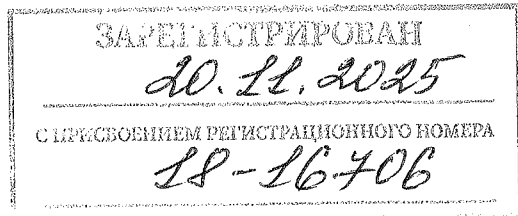 ЗАРЕГИСТРИРОВАН
20.11.2025
С ПРИСВОЕНИЕМ РЕГИСТРАЦИОННОГО НОМЕРА
18-16706